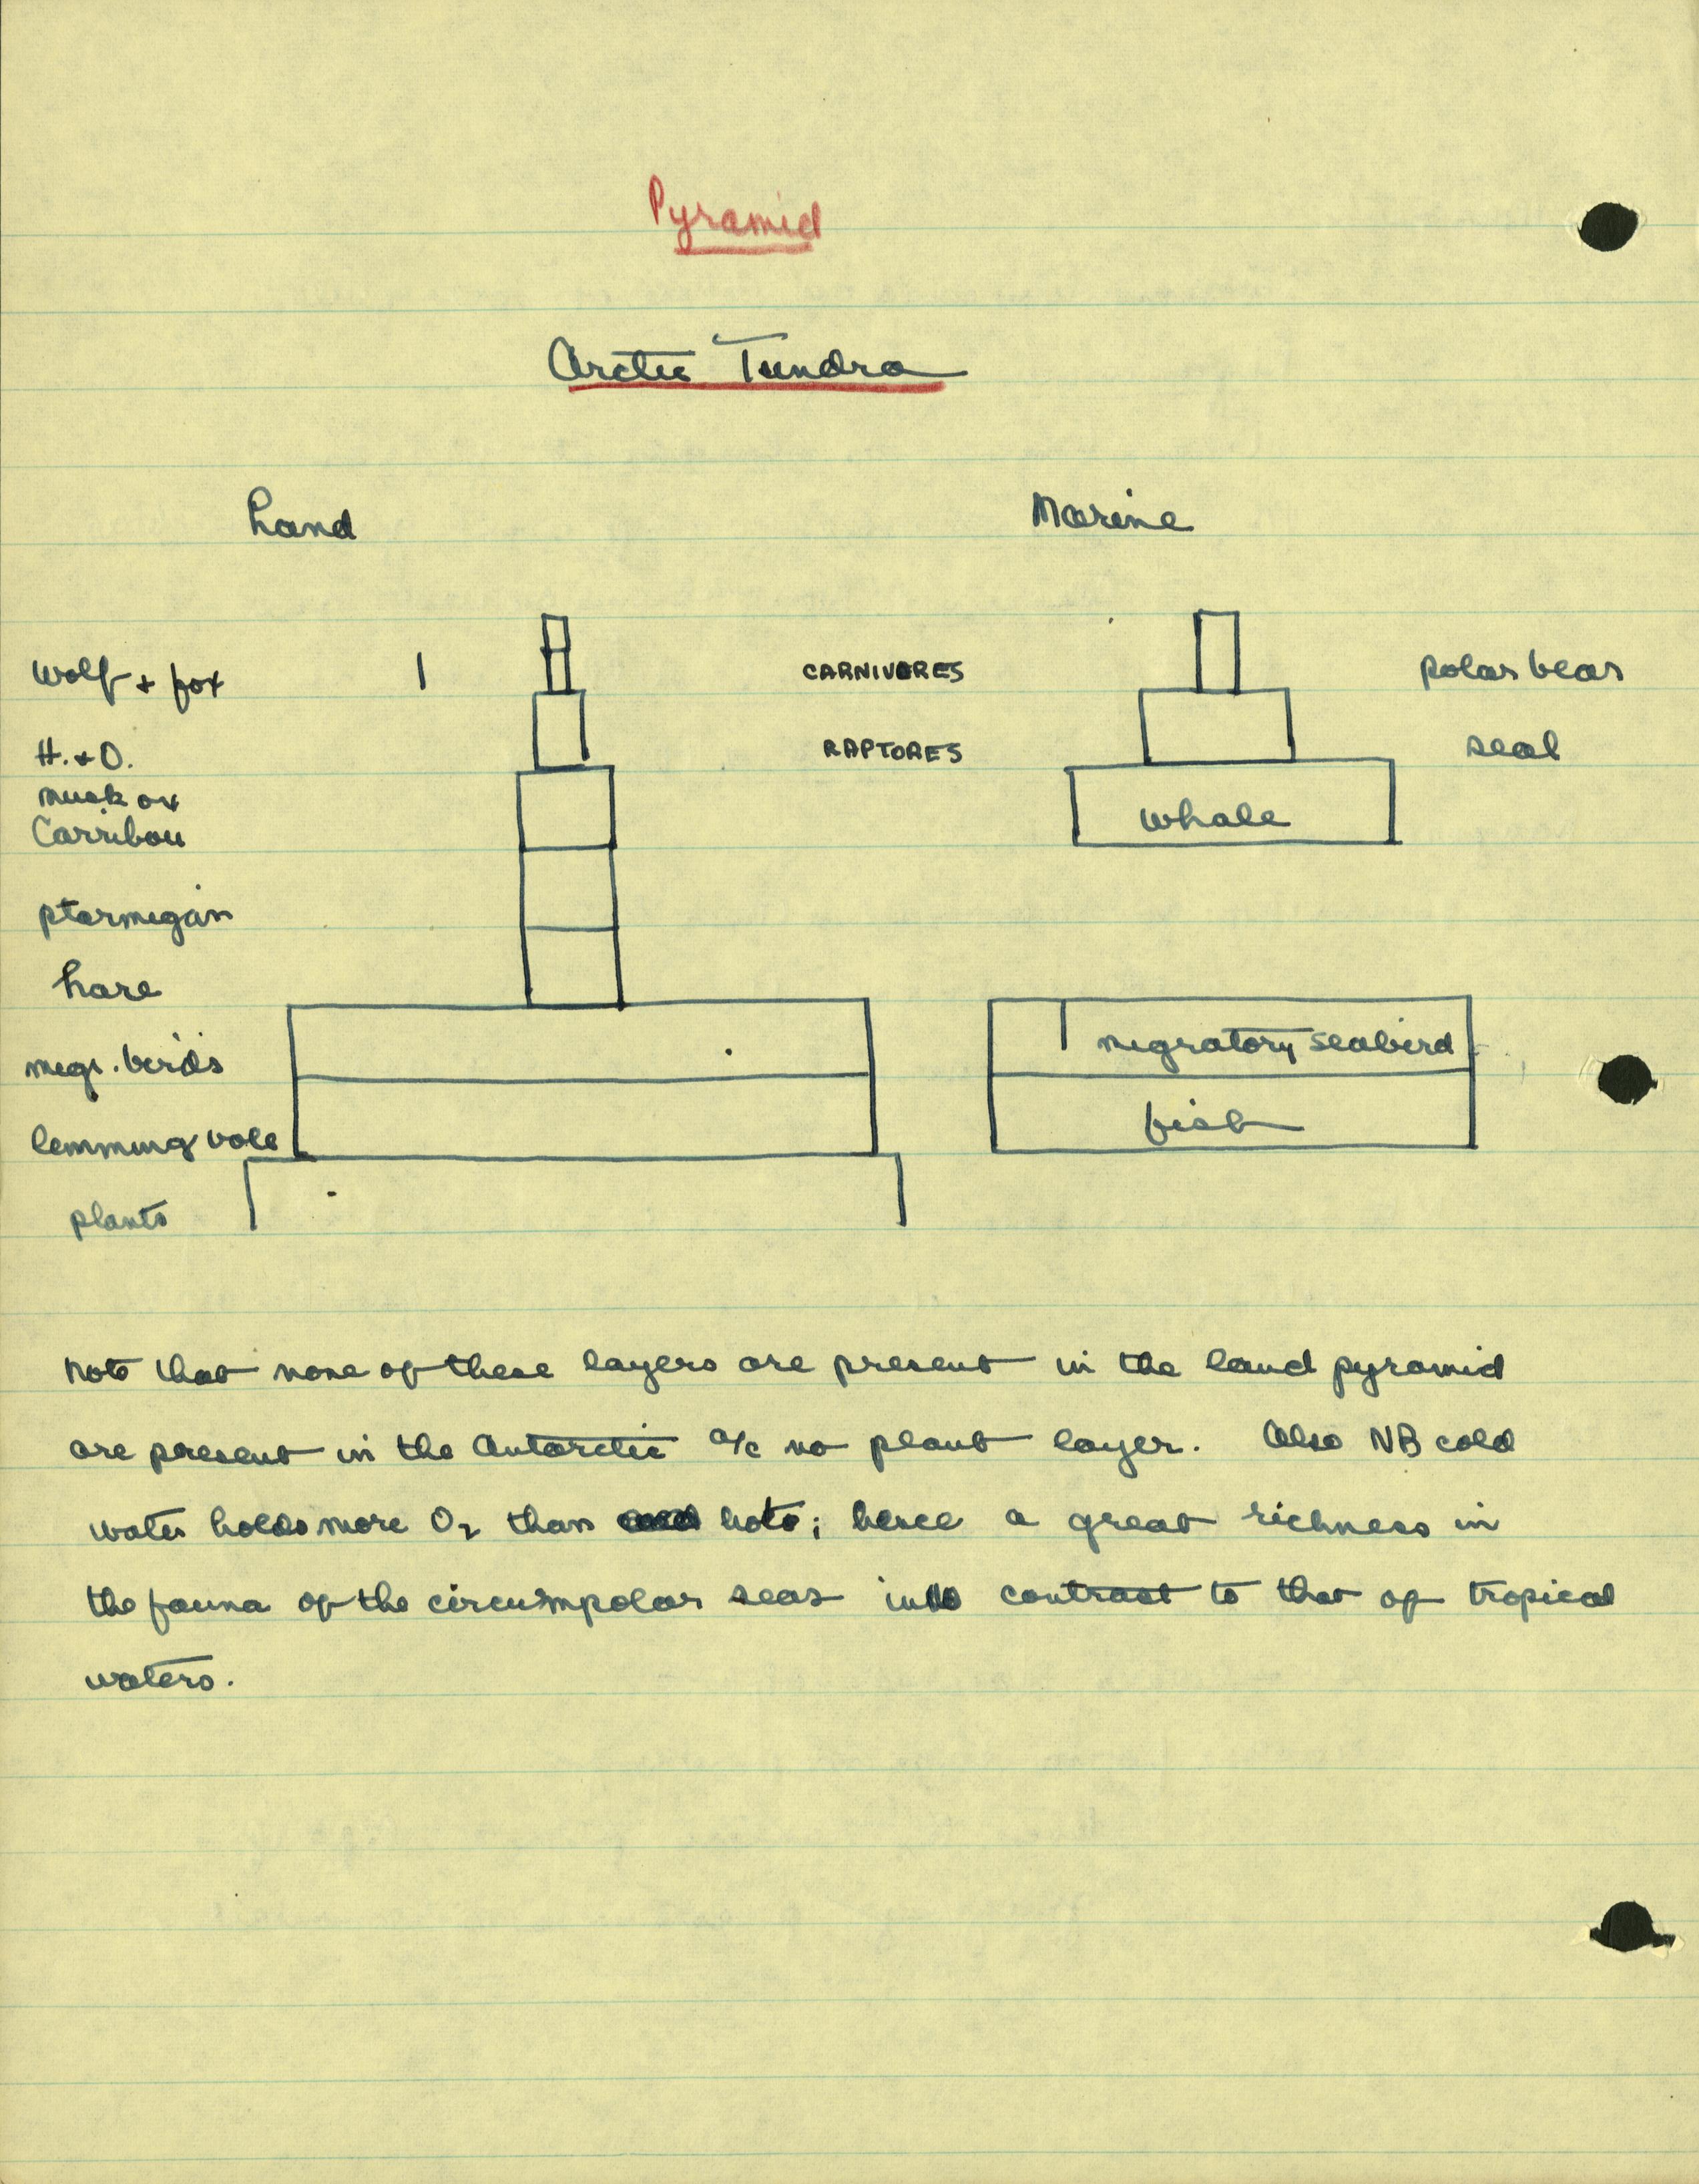 Pyramid
Arctic Tundra
Land Marine
wolf + fox 1 CARNIVORES polar bear
H. + O. RAPTORES seal
musk ox
Carribou whale
ptarmigan
hare
migr. birds migratory seabird
lemming vole fish
plants
Note that none of these layers are present in the land pyramid
are present in the Antarctic a/c no plant layer. Also NB cold
water holds more O2 than hot; hence a great richness in
the fauna of the circumpolar seas in contrast to that of tropical
waters.